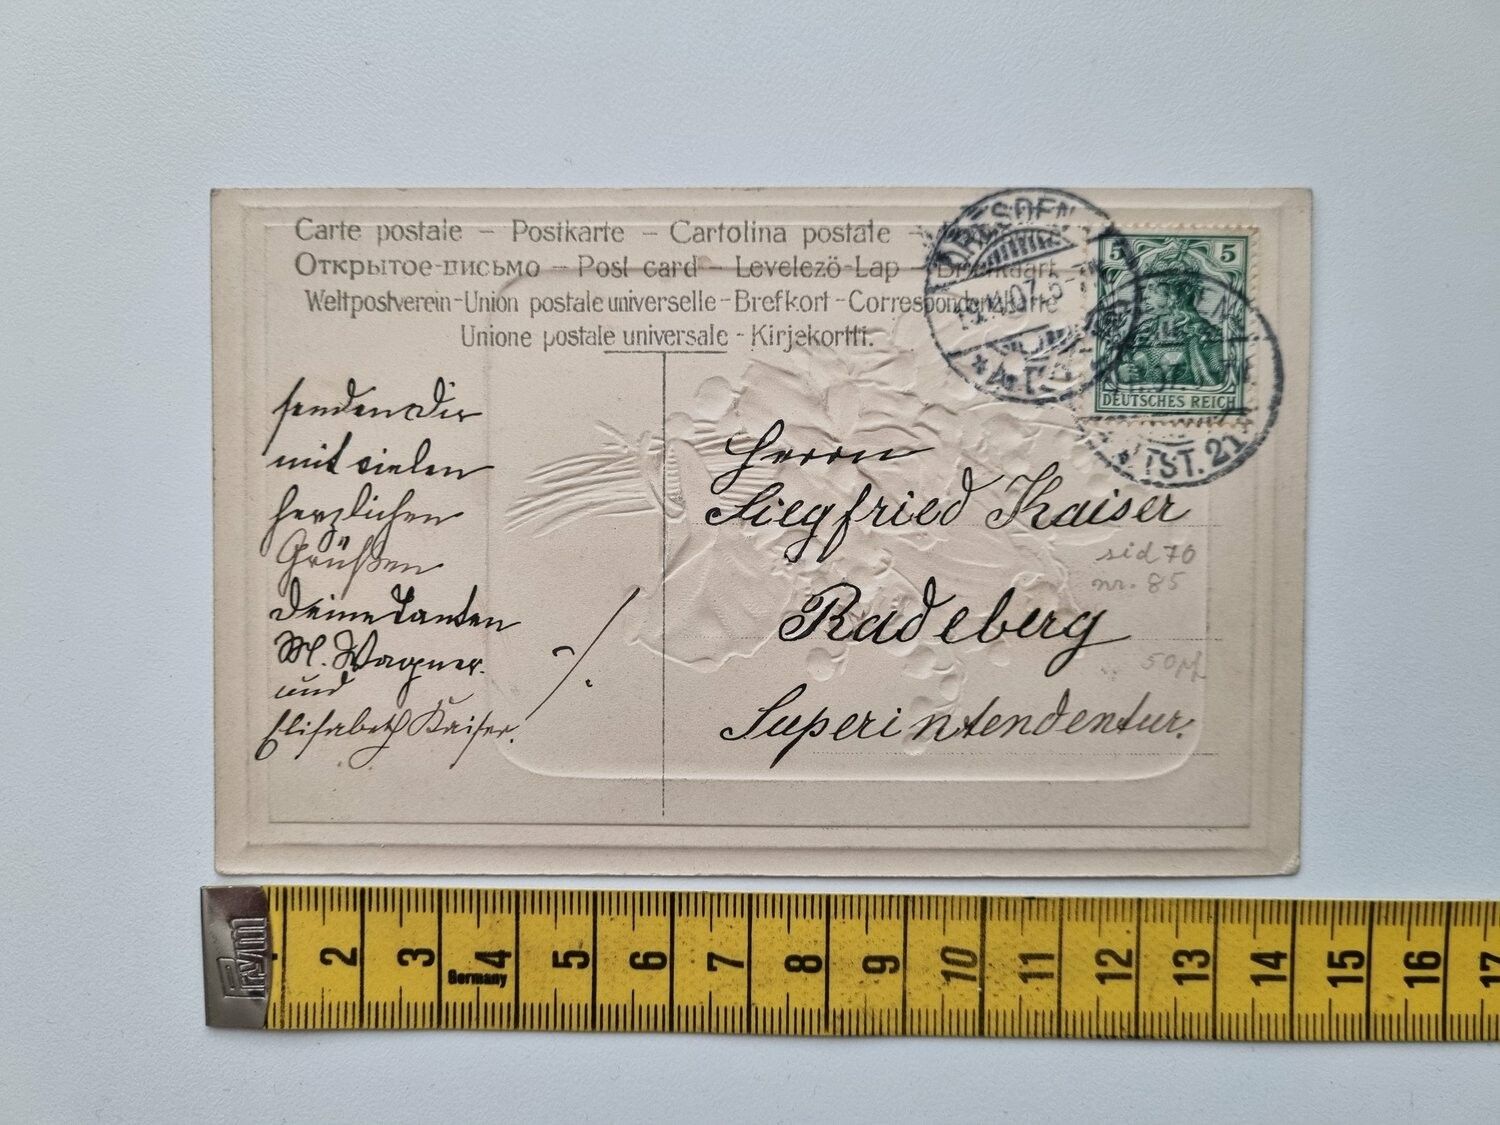 Carte postale – Postkarte – Cartolina postale –
Открытое-письмо – Post card – Levelező-Lap – Briefkaart
Weltpostverein-Union postale universelle-Brefkort-Correspondenzkarte
Unione postale universale - Kirjekortti.
DRESDEN
5 5
DEUTSCHES REICH
ST. 21
senden Dir
mit vielen
herzlichen
Grüßen
Deine Tanten
M. Wagner.
und
Elisabeth Kaiser.
Herrn
Siegfried Kaiser
sid 70
nr. 85
Radeberg
50 pf
Superintendentur.
Prym
2 3 4 5 6 7 8 9 10 11 12 13 14 15 16 17
Germany